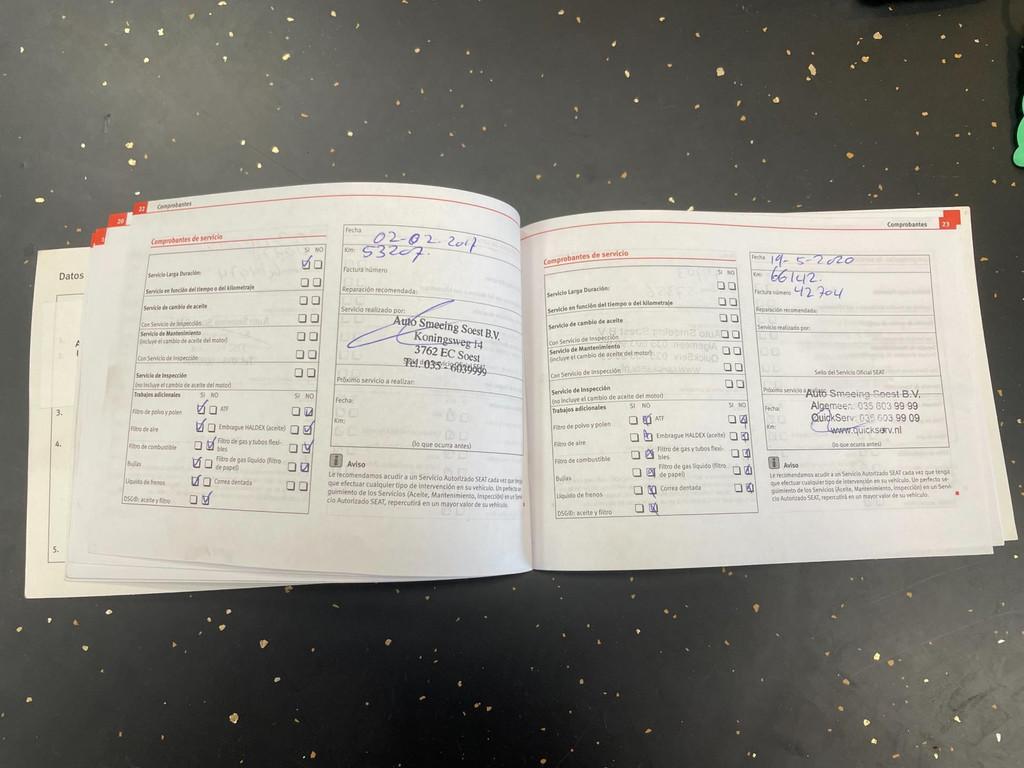 20
22
Comprobantes
Comprobantes de servicio
SI NO
Servicio Larga Duración:
Servicio en función del tiempo o del kilometraje
Servicio de cambio de aceite
Con Servicio de Inspección
Servicio de Mantenimiento
(incluye el cambio de aceite del motor)
Con Servicio de Inspección
Servicio de Inspección
(no incluye el cambio de aceite del motor)
Trabajos adicionales
SI NO
SI NO
Filtro de polvo y polen
ATF
Filtro de aire
Embrague HALDEX (aceite)
Filtro de combustible
Filtro de gas y tubos flexi-
bles
Bujías
Filtro de gas líquido (filtro
de papel)
Líquido de frenos
Correa dentada
DSG®: aceite y filtro
Fecha
02-02-2017
Km:
53207.
Factura número
Reparación recomendada:
Servicio realizado por:
Auto Smeeing Soest B.V.
Koningsweg 14
3762 EC Soest
Tel. 035 - 6039999
Próximo servicio a realizar:
Fecha:
Km:
(lo que ocurra antes)
i Aviso
Le recomendamos acudir a un Servicio Autorizado SEAT cada vez que tenga
que efectuar cualquier tipo de intervención en su vehículo. Un perfecto se-
guimiento de los Servicios (Aceite, Mantenimiento, Inspección) en un Servi-
cio Autorizado SEAT, repercutirá en un mayor valor de su vehículo.
Datos
3.
4.
5.
Comprobantes
23
Comprobantes de servicio
SI NO
Servicio Larga Duración:
Servicio en función del tiempo o del kilometraje
Servicio de cambio de aceite
Con Servicio de Inspección
Servicio de Mantenimiento
(incluye el cambio de aceite del motor)
Con Servicio de Inspección
Servicio de Inspección
(no incluye el cambio de aceite del motor)
Trabajos adicionales
SI NO
SI NO
Filtro de polvo y polen
ATF
Filtro de aire
Embrague HALDEX (aceite)
Filtro de combustible
Filtro de gas y tubos flexi-
bles
Bujías
Filtro de gas líquido (filtro
de papel)
Líquido de frenos
Correa dentada
DSG®: aceite y filtro
Fecha
19-5-2020
Km:
66142.
Factura número
42704
Reparación recomendada:
Servicio realizado por:
Sello del Servicio Oficial SEAT
Próximo servicio a
Auto Smeeing Soest B.V.
Fecha:
Algemeen: 035 603 99 99
QuickServ: 035 603 99 09
Km:
www.quickserv.nl
(lo que ocurra antes)
i Aviso
Le recomendamos acudir a un Servicio Autorizado SEAT cada vez que tenga
que efectuar cualquier tipo de intervención en su vehículo. Un perfecto se-
guimiento de los Servicios (Aceite, Mantenimiento, Inspección) en un Servi-
cio Autorizado SEAT, repercutirá en un mayor valor de su vehículo.